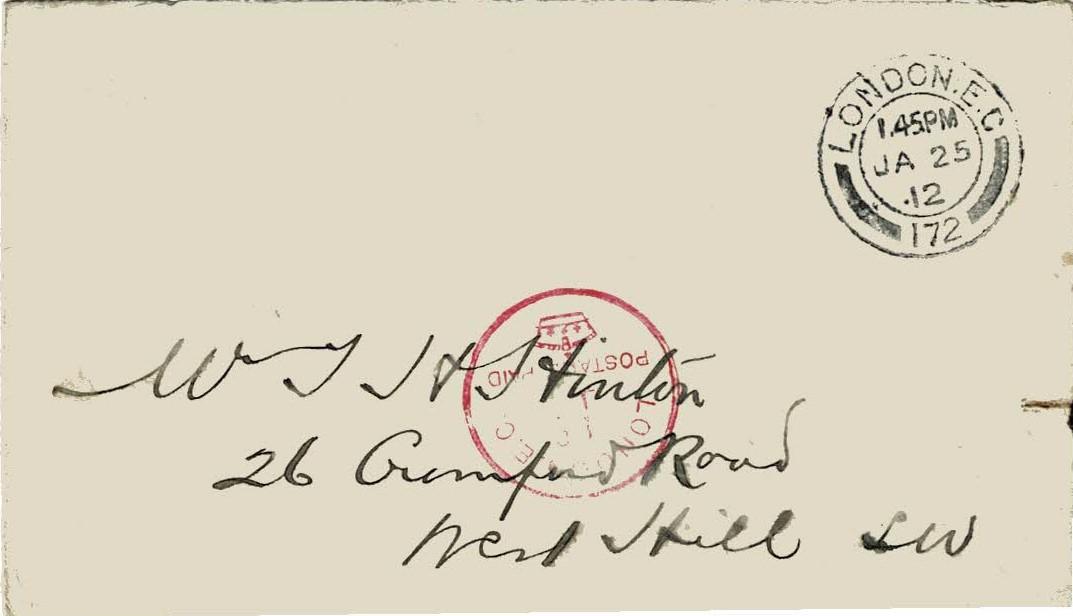 LONDON.E.C
1.45PM
JA 25
.12
172
POSTAGE PAID
LONDON
E C
Mr T H Hinton
26 Cromford Road
West Hill SW